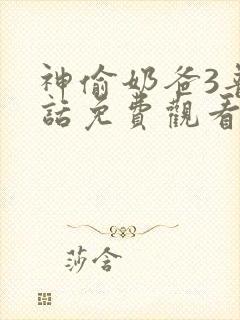 神偷奶爸3普
話免費觀看
莎含